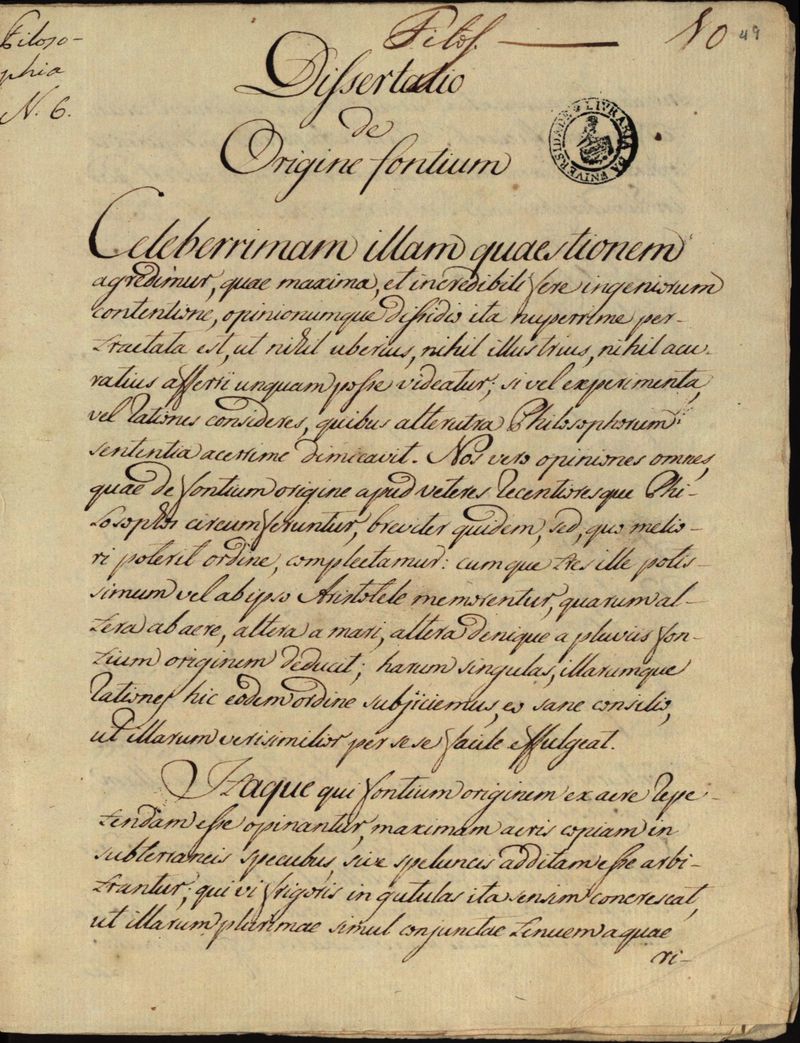 Filoso-
phia
N. 6.
Filos.
10
49
Dissertatio
de
Origine fontium
LIVRARIA DA VNIVERSIDADE
Celeberrimam illam quaestionem
agredimur, quae maxima, et incredibili fere ingeniorum
contentione, opinionumque dissidio ita nuperrime per-
tractata est, ut nihil uberius, nihil illustrius, nihil acu-
ratius afferri unquam posse videatur; si vel experimenta,
vel rationes consideres, quibus alterutra Philosophorum
sententia acerrime dimicavit. Nos vero opiniones omnes,
quae de fontium origine apud veteres recentioresque Phi-
losophos circumferuntur, breviter quidem, sed, quo melio-
ri poterit ordine, complectamur: cumque tres ille potis-
simum vel ab ipso Aristotele memorentur, quarum al-
tera ab aere, altera a mari, altera denique a pluviis fon-
tium originem deducit; harum singulas, illarumque
rationes hic eodem ordine subjiciemus, eo sane consilio,
ut illarum verisimilior per se se facile effulgeat.
Itaque qui fontium originem ex aere repe-
tendam esse opinantur, maximam aeris copiam in
subterraneis specubus, sive speluncis additam esse arbi-
trantur; qui vi frigoris in gutulas ita sensim concrescat,
ut illarum plurimae simul conjunctae tenuem aquae
ri-